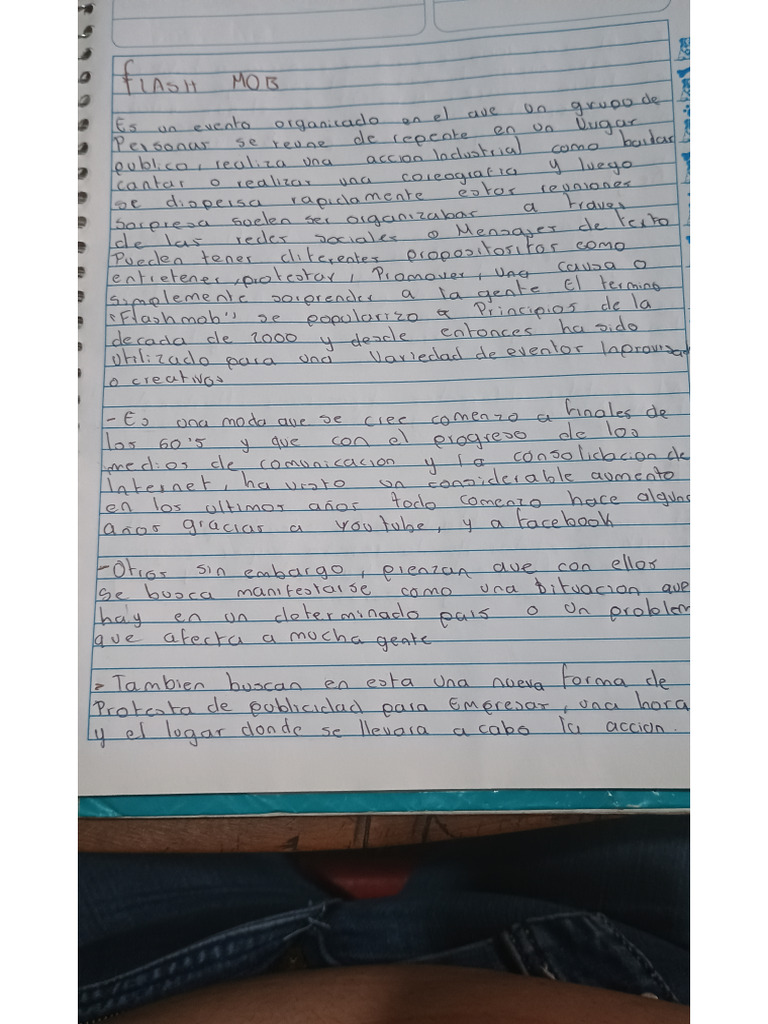 FLASH MOB
Es un evento organizado en el que un grupo de
Personas se reune de repente en un lugar
publico, realiza una accion Industrial como bailar
cantar o realizar una coreografia y luego
se dispersa rapidamente estas reuniones
sorpresa suelen ser organizabas a traves
de las redes sociales o Mensajes de texto
Pueden tener diferentes propositositos como
entretener, protestar, Promover, una causa o
simplemente sorprender a la gente El termino
"Flashmob" se popularizo a Principios de la
decada de 2000 y desde entonces ha sido
utilizado para una Variedad de eventos Inprovisad
o creativos
- Es una moda que se cree comenzo a finales de
los 60's y que con el progreso de los
medios de comunicacion y la consolidacion de
Internet, ha visto un considerable aumento
en los ultimos años todo comenzo hace alguns
años gracias a youtube, y a facebook
- Otros sin embargo, pienzan que con ellos
se busca manifestarse como una situacion que
hay en un determinado pais o un problem
que afecta a mucha gente
- Tambien buscan en esta una nueva forma de
Protesta de publicidad para Empresas, una hora
y el lugar donde se llevara a cabo la accion.